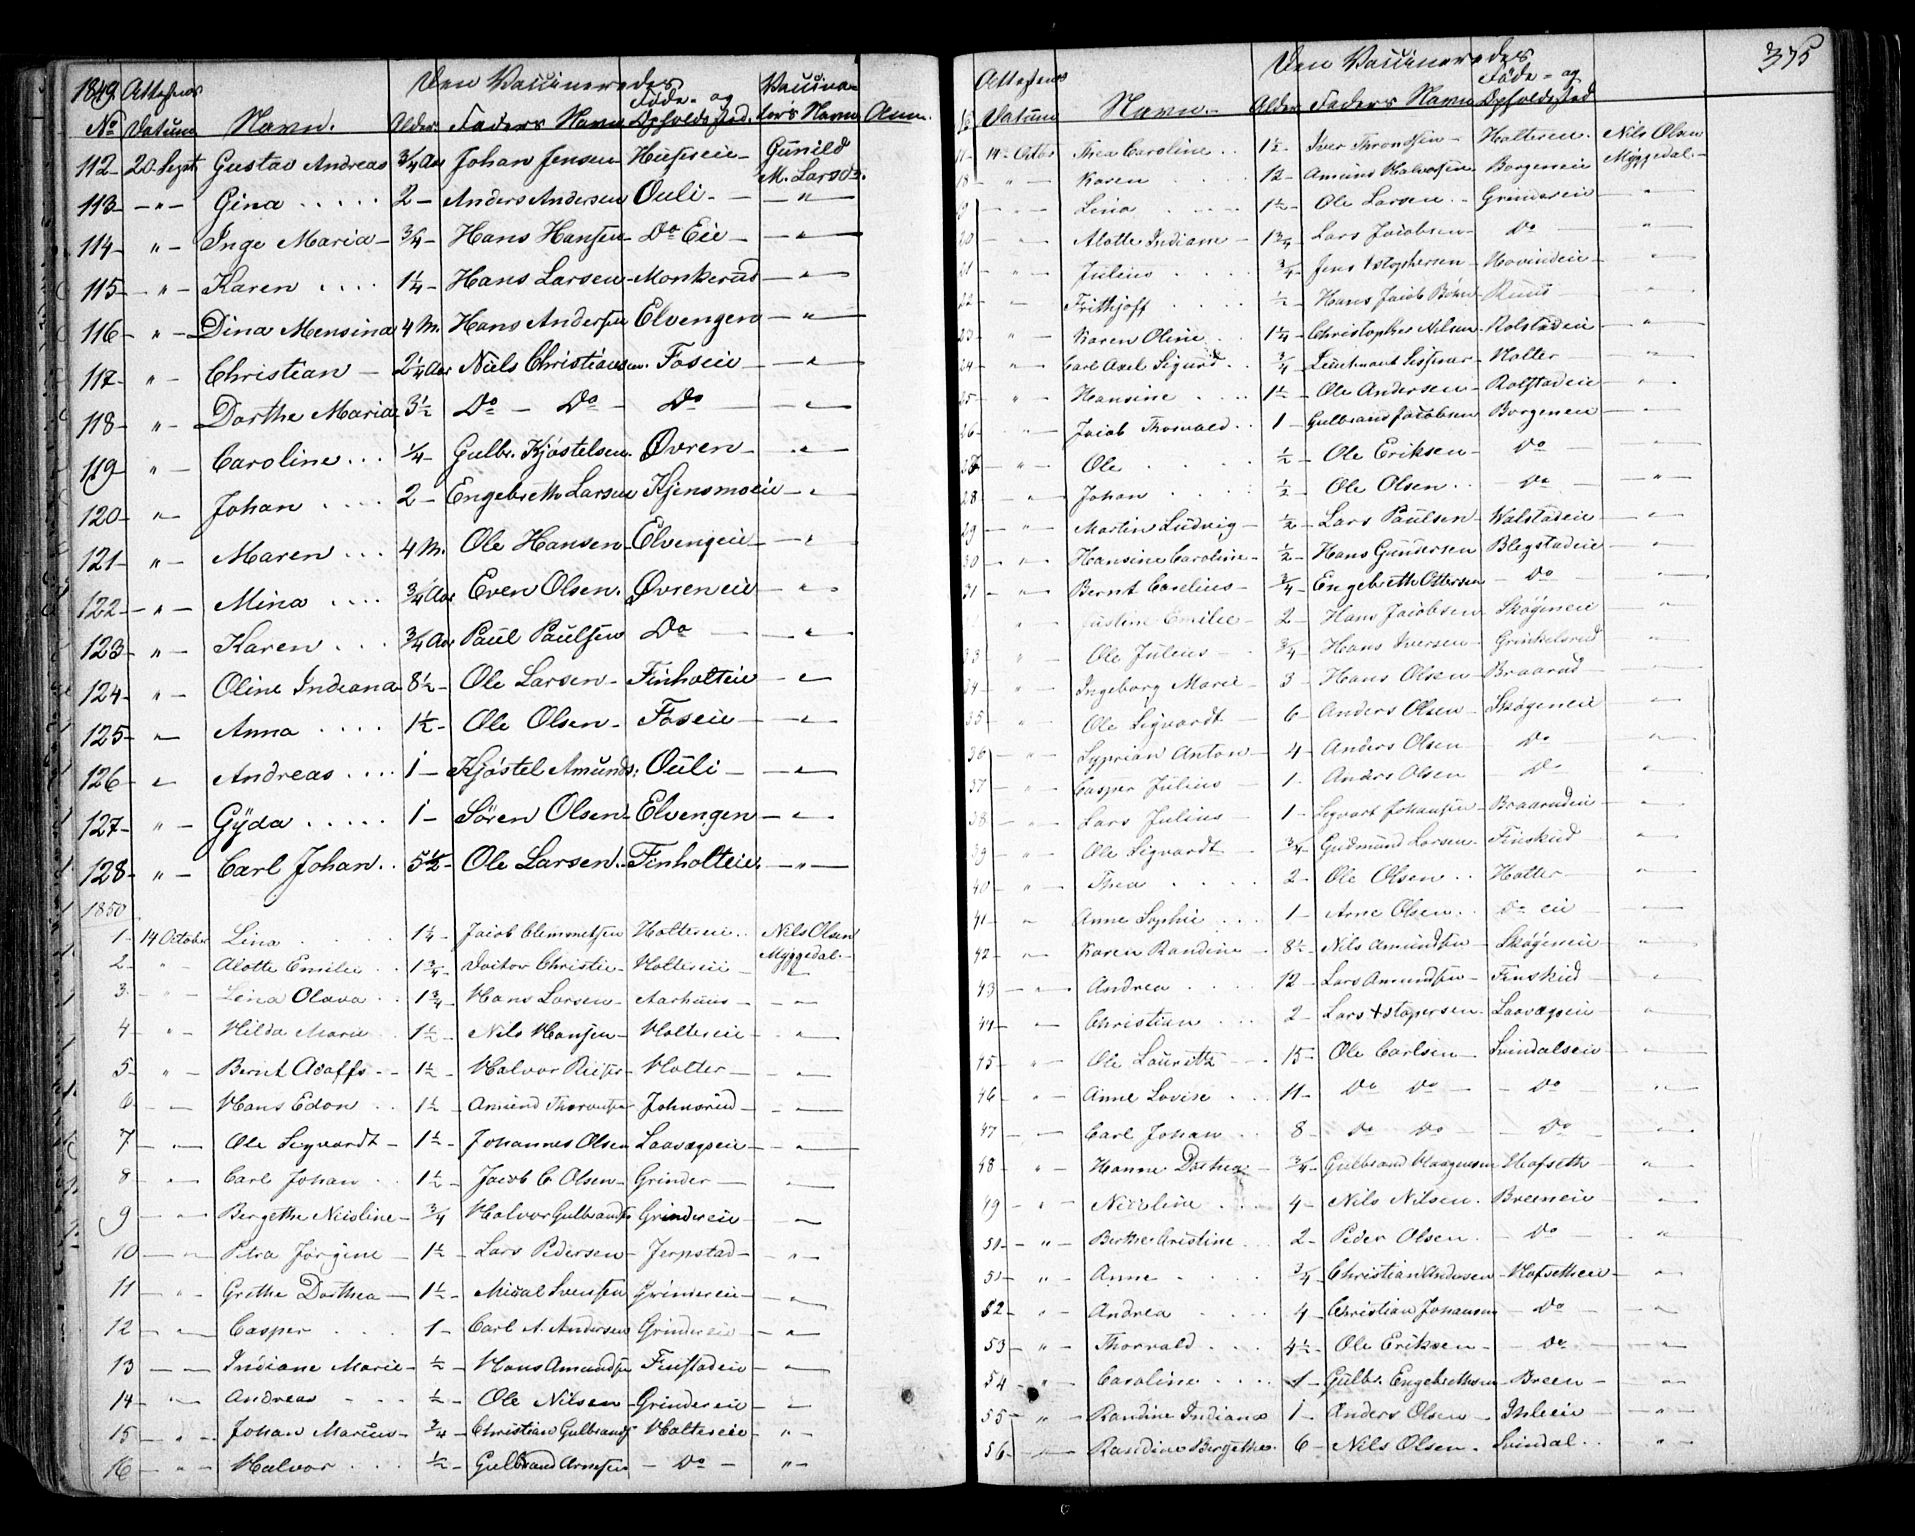 1849 Attestens Den Vaccineredes Vaccina-
No Datum Navn. Alder Faders Navn Føde- og Opholdssted. tørs Navn Anm.
112- 20 Sept. Gustav Andreas 3/4 Aar Johan Jensen Huuseie- Gunild M. Larsd.
113- -"- Gina ..... 2- Anders Andersen Ouli- -"-
114- "- Inge Maria- 3/4- Hans Hansen- Do Eie- -"-
115- -"- Karen .... 1 1/4- Hans Larsen- Monkerud -"-
116- "- Dina Mensina 4 M. Hans Andersen Elvengen -"-
117- "- Christian - 2 1/4 Aar Niels Christiansen. Foseie -"-
118- "- Dorthe Maria 3 1/2 Do - Do - Do -"-
119- "- Caroline... 1/4- Gulbr. Kjøstelsen. Øvren- -"-
120- "- Johan .... 2- Engebreth Larsen Kjensmoeie- "-
121- "- Maren ... 4 M. Ole Hansen- Elvengeie- "-
122- -"- Mina .... 3/4 Aar Even Olsen. Øvreneie- "-
123- "- Karen... 3/4 Aar Paul Paulsen Do -"-
124- "- Oline Indiana- 8 1/2- Ole Larsen- Finholteie- "-
125- "- Anna .... 1 1/2- Ole Olsen- Foseie- "-
126- "- Andreas .... 1- Kjøstel Amunds: Ouli- -"-
127- "- Gÿda ..... 1- Søren Olsen- Elvengen- "-
128- "- Carl Johan.. 5 1/2- Ole Larsen. Finholteie. -"-
1850
1- 14 October Lina 1 1/4- Jacob Clemmetsen Holtereie.. Nils Olsen Myggedal.
2- "- Alotte Emilie.. 1 3/4- Doctor Christie- Holtereie- "-
3- "- Lina Olava.. 1 3/4- Hans Larsen- Aarhuus- "-
4- "- Hilda Marie 1 1/2- Nils Hansen- Holtereie- "-
5- "- Bernt Adolffs-- 1 1/2- Halvor Riiser- Holter- "-
6- "- Hans Edon.. 1 1/2- Amund Thorersen Johnsrud- "-
7- "- Ole Sigvardt- 1 1/2- Johannes Olsen Laavagseie- "-
8- "- Carl Johan.. 1 1/2- Jacob C Olsen- Grinder- "-
9- "- Bergethe Nicoline- 3/4- Halvor Gulbrands Grindereie- "-
10- "- Petra Jørgine- 1 1/2- Lars Pedersen- Jerpstad- "-
11- "- Grethe Dorthea- 1 1/2- Micael Svensen Grindereie- "-
12- "- Casper ... 1- Carl A. Andersen Grindereie- "-
13- "- Indiane Marie- 1/2- Hans Amundsen Finstadeie- "-
14- "- Andreas -.. 1/2- Ole Nilsen- Grindereie- "-
15- "- Johan Marius- 3/4- Christian Gulbrands Holtereie- "-
16- "- Halvor ... 1/2- Gulbrand Arnesen - Do - "-
375
Attestens Den Vaccineredes
No Datum Navn- Alder Faders Navn Føde- og Opholdssted
17- 14- Octob Thea Caroline.. 1 1/2- Iver Throndsen- Holteren. Nils Olsen
18- "- Karen 12- Amund Halvorsen Borgeneie Myggedal-
19 "- Lina 1 1/2- Ole Larsen.. Grindereie "-
20- "- Alotte Indiane- 1 3/4- Lars Jacobsen- Do - "-
21- "- Julius 3/4- Jens Xstophersen- Hovindeie- "-
22- "- Frithjoff 1/2- Hans Jacob Bøhn- Ruus- "-
23- "- Karen Oline. 1 1/4- Christopher Nilsen- Rolstadeie "-
24- "- Carl Axel Sigurd.. 3/4- Lieutnant - Holter "-
25- "- Hansine.... 1 1/2- Ole Andersen- Rolstadeie "-
26- "- Jacob Thorvald.. 1- Gulbrand Jacobsen Borgeneie "-
27- "- Ole.... 1/2- Ole Eriksen- Do - "-
28- "- Johan... 1/2- Ole Olsen.. - Do - "-
29- "- Martin Ludvig- 1/2- Lars Paulsen- Walstadeie "-
30- "- Hansine Caroline- 1/2- Hans Gundersen Blegstadeie- "-
31- "- Bernt Cornelius- 3/4- Engebreth Ottersen - Do - "-
"- Justine Emilie- 2- Hans Jacobsen- Skøgeneie "-
33 "- Ole Julius-. 3/4- Hans Iversen- Grinkelsrud "-
34- "- Ingeborg Marie- 3- Hans Olsen- Braarud- "-
35- "- Ole Sigvardt- 6- Anders Olsen- Skøgeneie "-
36- "- Syprian Anton- 4- Anders Olsen Do - "-
37- "- Casper Julius- 1- Anders Olsen - Do - "-
38- "- Lars Julius- 1- Sigvart Johansen- Braarudeie- "-
39- "- Ole Sigvardt- 3/4- Gudmund Larsen- Finskud "-
40- "- Thea.... 2- Ole Olsen.. Holter- "-
41- "- Anne Sophie... 1- Arne Olsen.. Do eie "-
42- "- Karen Randine- 8 1/2- Nils Amundsen- Skøgeneie- "-
43- "- Andrea.... 12- Lars Amundsen- Finskud- "-
44- "- Christian... 2- Lars Xstophersen- Laavagseie- "-
45- "- Ole Lauritz-. 15- Ole Carlsen- Svindalseie- "-
46- "- Anne Lovise.. 11- Do Do - Do - "-
47- "- Carl Johan.. 8- Do Do - Do - "-
48- "- Hanne Dorthea- 3/4- Gulbrand Haagensen Hofseth "-
49- "- Nicoline... 4- Nils Nilsen. Breeneie- "-
51- "- Berthe Christine 2- Peder Olsen. - Do "-
51- "- Anne.... 3/4- Christian Andersen- Hofsetheie- "-
52- "- Andrea.... 4- Christian Johansen - Do - "-
53- "- Thorvald... 4 1/2- Ole Eriksen- - Do - "-
54- "- Caroline.... 1- Gulbr. Engebrethsen- Breen- "-
55- "- Randine Indiane 1- Anders Olsen- Ihleeie- "-
56- "- Randine Bergethe. 6- Nils Olsen- Svindal.. "-